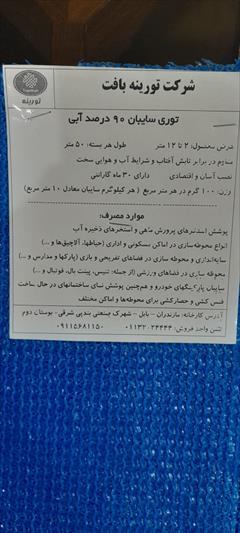 شرکت تورینه بافت
تورینه
توری سایبان ۹۰ درصد آبی
عرض محصول: ۲ تا ۱۲ متر طول هر بسته: ۵۰ متر
مقاوم در برابر تابش آفتاب و شرایط آب و هوایی سخت
نصب آسان و اقتصادی دارای ۳۰ ماه گارانتی
وزن: ۱۰۰ گرم در هر متر مربع (هر کیلوگرم سایبان معادل ۱۰ متر مربع)
موارد مصرف:
پوشش استخرهای پرورش ماهی و استخرهای ذخیره آب
انواع محوطه‌سازی در اماکن مسکونی و اداری (حیاطها، آلاچیق‌ها و ...)
سایه‌اندازی و محوطه سازی در فضاهای تفریحی و بازی (پارکها و مدارس و ...)
محوطه سازی در فضاهای ورزشی (از جمله: تنیس، پینت بال، فوتبال و ...)
سایبان پارکینگهای خودرو و همچنین پوشش نمای ساختمانهای در حال ساخت
فنس کشی و حصارکشی برای محوطه‌ها و اماکن مختلف
آدرس کارخانه: مازندران - بابل - شهرک صنعتی بندپی شرقی - بوستان دوم
تلفن واحد فروش: ۰۱۱۳۲۰۲۴۴۴۴ - ۰۹۱۱۵۶۸۱۱۵۰